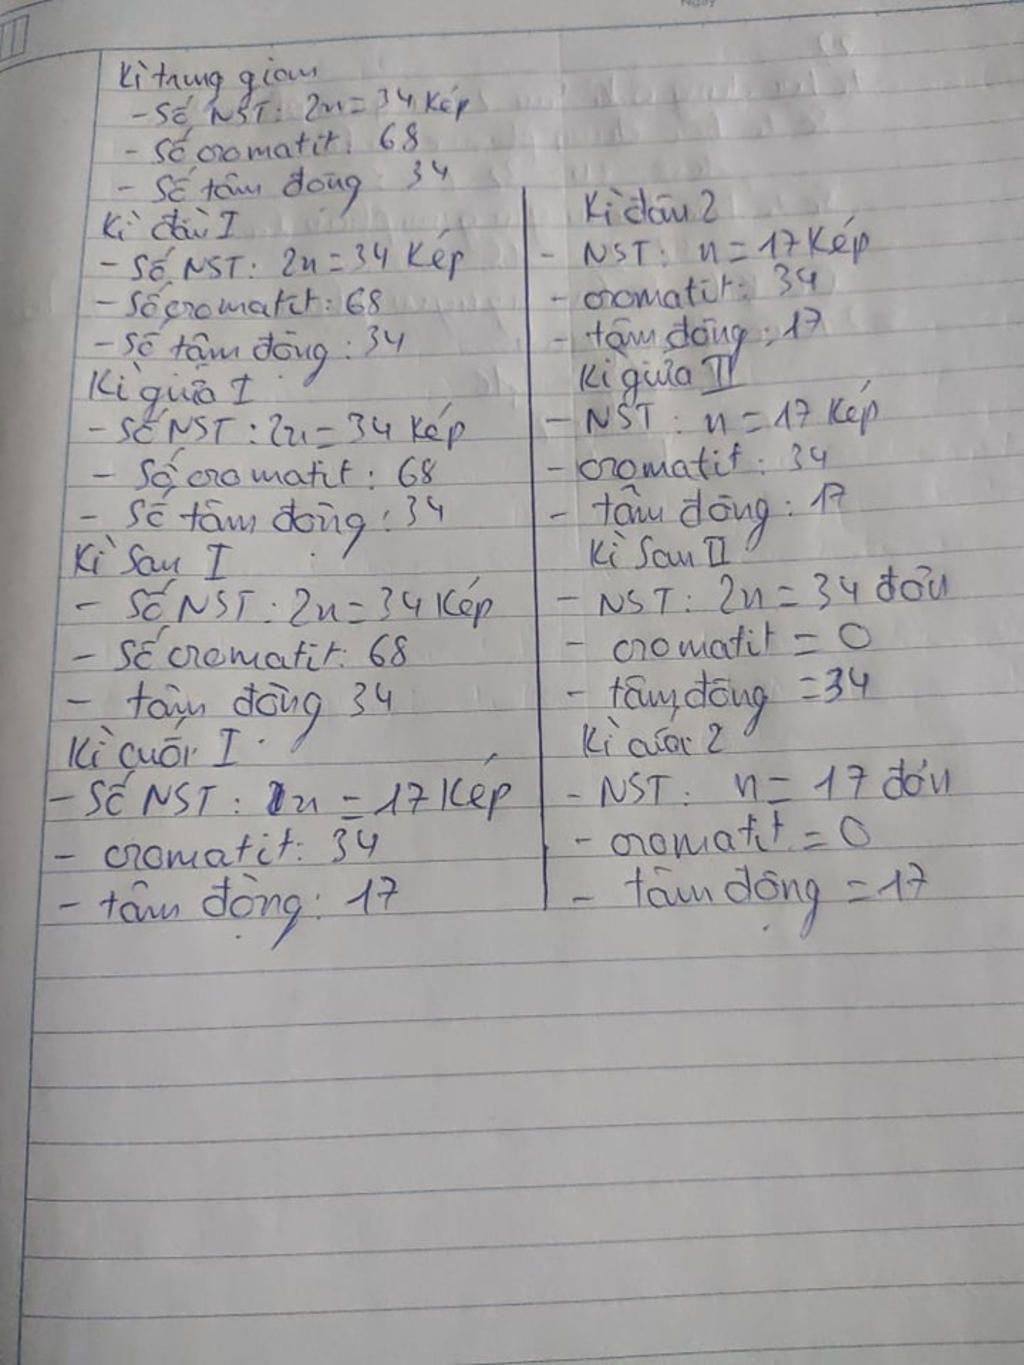 Kì trung gian
- Số NST: 2n = 34 Kép
- Số cromatit: 68
- Số tâm động 34
Kì đầu I
- Số NST: 2n = 34 Kép
- Số cromatit: 68
- Số tâm động: 34
Kì giữa I
- Số NST: 2n = 34 Kép
- Số cromatit: 68
- Số tâm động: 34
Kì sau I
- Số NST: 2n = 34 Kép
- Số cromatit: 68
- tâm động 34
Kì cuối I
- Số NST: n = 17 Kép
- cromatit: 34
- tâm động: 17
Kì đầu 2
- NST: n = 17 Kép
- cromatit: 34
- tâm động: 17
Kì giữa II
- NST: n = 17 Kép
- cromatit: 34
- tâm động: 17
Kì sau II
- NST: 2n = 34 đơn
- cromatit = 0
- tâm động = 34
Kì cuối 2
- NST: n = 17 đơn
- cromatit = 0
- tâm động = 17